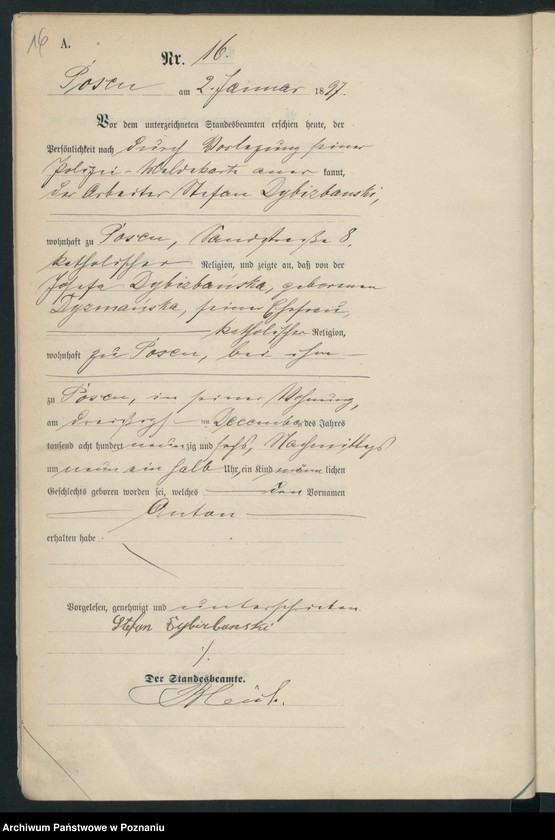 16
A.
Nr. 16.
Posen am 2. Januar 1897.
Vor dem unterzeichneten Standesbeamten erschien heute, der
Persönlichkeit nach durch Vorlegung seiner
Polizei-Meldekarte aner kannt,
der Arbeiter Stefan Dybizbanski,
wohnhaft zu Posen, Sandstraße 8,
katholischer Religion, und zeigte an, daß von der
Josefa Dybizbańska, geborenen
Dyzmańska, seiner Ehefrau,
katholischer Religion,
wohnhaft zu Posen, bei ihm
zu Posen, in seiner Wohnung,
am dreißigsten December des Jahres
tausend acht hundert neunzig und sechs, Nachmittags
um neun ein halb Uhr, ein Kind männlichen
Geschlechts geboren worden sei, welches den Vornamen
Anton
erhalten habe
Vorgelesen, genehmigt und unterschrieben
Stefan Dybizbanski
Der Standesbeamte.
Archiwum Państwowe w Poznaniu